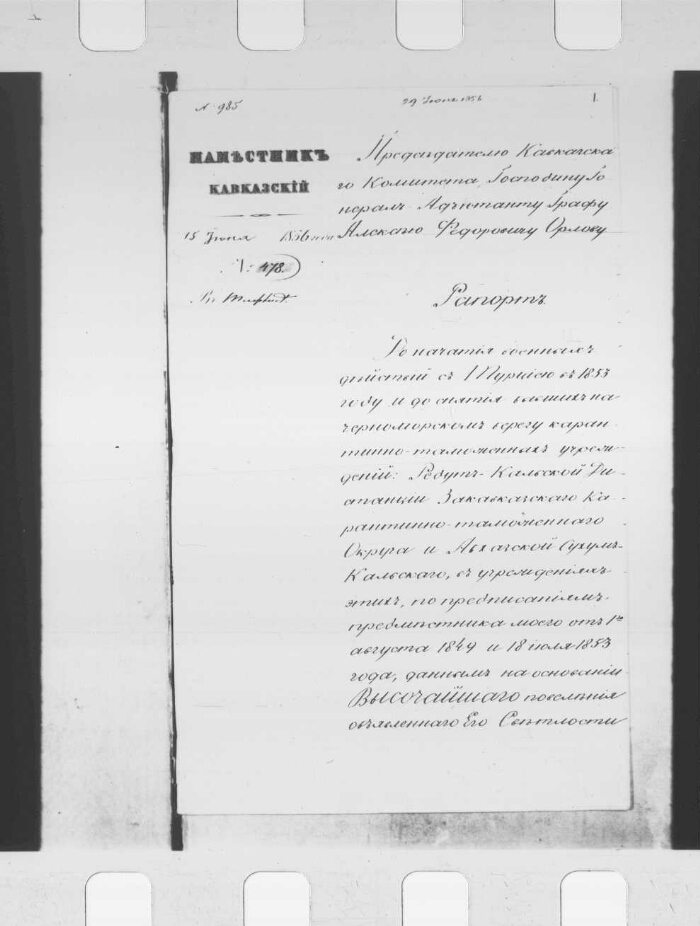 № 985
29 Июня 1856
1
НАМѢСТНИКЪ
КАВКАЗСКІЙ
15 Іюня 1856 года
№: 478.
Въ Тифлисѣ.
Предсѣдателю Кавказска
го Комитета, Господину Ге
нералъ Адъютанту Графу
Алексѣю Ѳедоровичу Орлову
Рапортъ.
До начатія военныхъ
дѣйствій съ Турціею въ 1853
году и до снятія бывшихъ на
черноморскомъ берегу каран
тинно-таможенныхъ учреж
деній: Редутъ-Кальской Ди
станціи Закавказскаго Ка
рантинно-таможеннаго
Округа и Абхазской Сухумъ-
Кальскаго, въ учрежденіяхъ
этихъ, по предписаніямъ
предмѣстника моего отъ 1го
августа 1849 и 18 іюля 1853
года, даннымъ на основаніи
ВЫСОЧАЙШАГО повелѣнія
объявленнаго Его Свѣтлости